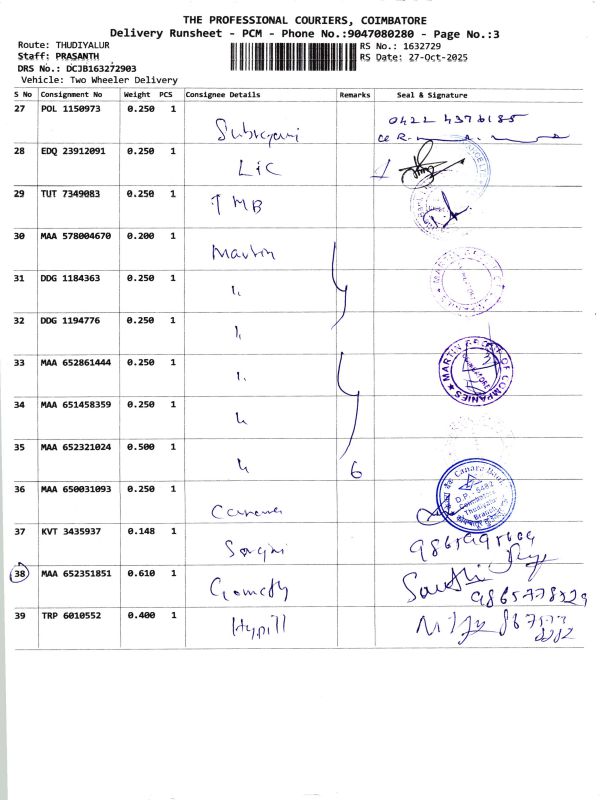 THE PROFESSIONAL COURIERS, COIMBATORE
Delivery Runsheet - PCM - Phone No.:9047080280 - Page No.:3
Route: THUDIYALUR
Staff: PRASANTH
DRS No.: DCJB163272903
Vehicle: Two Wheeler Delivery
RS No.: 1632729
RS Date: 27-Oct-2025
S No Consignment No Weight PCS Consignee Details Remarks Seal & Signature
27 POL 1150973 0.250 1
28 EDQ 23912091 0.250 1 LIC
29 TUT 7349083 0.250 1 TMB
30 MAA 578004670 0.200 1 Martin
31 DDG 1184363 0.250 1 "
32 DDG 1194776 0.250 1 "
33 MAA 652861444 0.250 1 " MARTIN GROUP OF COMPANIES COIMBATORE
34 MAA 651458359 0.250 1 "
35 MAA 652321024 0.500 1 " 6
36 MAA 650031093 0.250 1 Canara Canara Bank D.P.: 6482 Coimbatore Thudiyalur Branch
37 KVT 3435937 0.148 1
38 MAA 652351851 0.610 1 9865778329
39 TRP 6010552 0.400 1